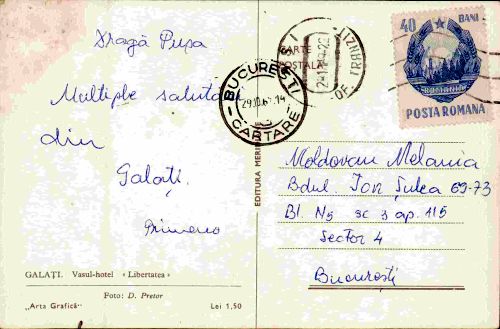 Dragă Pușa
Multiple salutări
din
Galați.
GALAȚI. Vasul-hotel «Libertatea»
Foto: D. Pretor
„Arta Grafică”
Lei 1,50
CARTE
POȘTALĂ
BUCUREȘTI
CARTARE
OF.
40 BANI
POSTA ROMANA
Moldovan Melania
Bdul. Ion Șulea 69-73
Bl. N5 sc 3 ap. 115
Sector 4
București